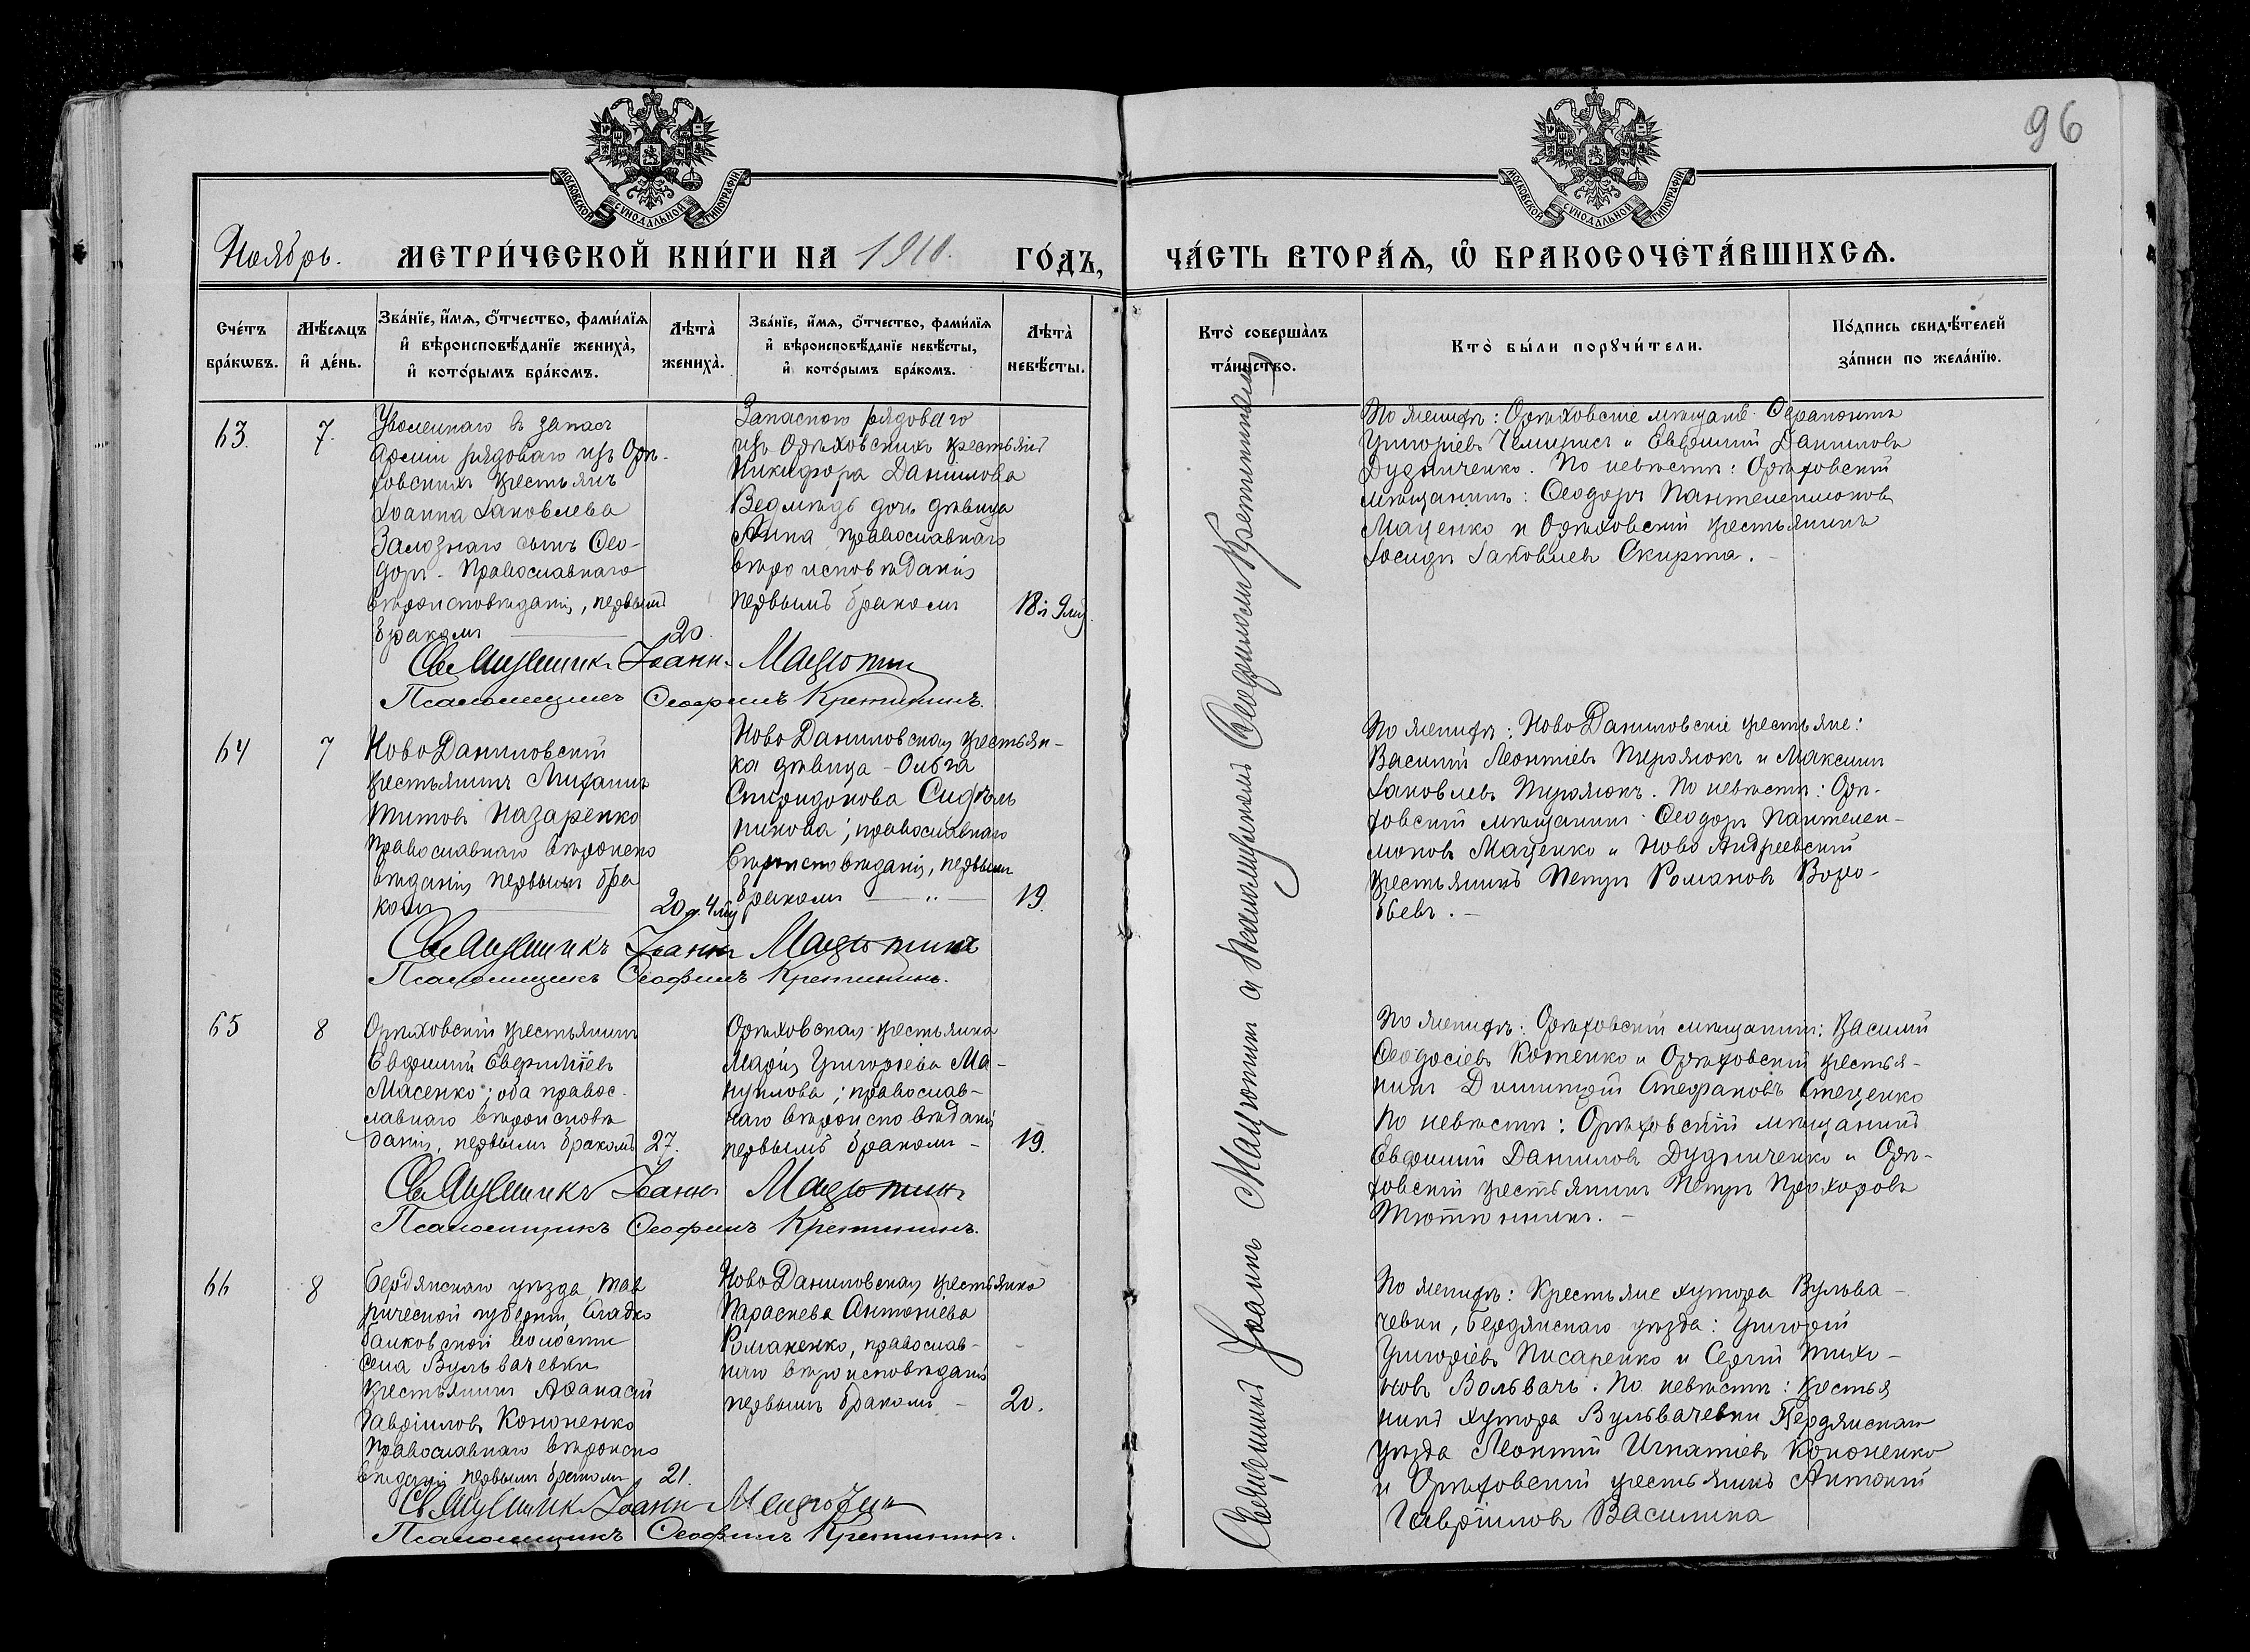 96
МОСКОВСКОЙ СѴНОДАЛЬНОЙ ТИПОГРАФІИ
МОСКОВСКОЙ СѴНОДАЛЬНОЙ ТИПОГРАФІИ
Ноябрь. МЕТРИ́ЧЕСКОЙ КНИ́ГИ НА 1910. ГО́ДЪ,
ЧА́СТЬ ВТОРА́Ѧ, Ѽ БРАКОСОЧЕТА́ВШИХСѦ.
Сче́тъ бра́кѡвъ.
Мѣ́сѧцъ и҆ де́нь.
Зва́нїе, и҆́мѧ, ѻ҆́тчество, фами́лїѧ
и҆ вѣроисповѣ́данїе жениха̀,
и҆ кото́рымъ бра́комъ.
Лѣта̀ жениха̀.
Зва́нїе, и҆́мѧ, ѻ҆́тчество, фами́лїѧ
и҆ вѣроисповѣ́данїе невѣ́сты,
и҆ кото́рымъ бра́комъ.
Лѣта̀ невѣ́сты.
Кто̀ соверша́лъ та́инство.
Кто̀ бы́ли порꙋчи́тели.
По́дпись свидѣ́телей
за́писи по жела́нїю.
63.
7.
Уволеннаго въ запасъ
арміи рядоваго изъ Орѣ-
ховскихъ крестьянъ
Іоанна Іаковлева
Залознаго сынъ Ѳео-
доръ. Православнаго
вѣроисповѣданія, первымъ
бракомъ
20.
Запасного рядоваго
изъ Орѣховскихъ крестьянъ
Никифора Данилова
Ведмедь дочь дѣвица
Анна, православнаго
вѣроисповѣданія
первымъ бракомъ
18 и 9 мѣ.
По женихѣ: Орѣховскіе мѣщане: Ѳерапонтъ
Григоріевъ Чемирисъ и Евфимій Даниловъ
Дудниченко. По невѣстѣ: Орѣховскій
мѣщанинъ: Ѳеодоръ Пантелеимоновъ
Маценко и Орѣховскій крестьянинъ
Іосифъ Іаковлевъ Скирта.
Священникъ Іоаннъ Мацютин
Псаломщикъ Ѳеофилъ Кретининъ.
64
7
Ново Даниловскій
крестьянинъ Михаилъ
Титовъ Назаренко
православнаго вѣроиспо
вѣданія первымъ бра
комъ
20 и 4 мѣ
Ново Даниловская крестьян-
ка дѣвица - Ольга
Спиридонова Сидѣль
никова; православнаго
вѣроисповѣданія, первымъ
бракомъ
19.
По женихѣ: Ново Даниловскіе крестьяне:
Василій Леонтіевъ Пирожокъ и Максимъ
Іаковлевъ Пирожокъ. По невѣстѣ: Орѣ-
ховскій мѣщанинъ Ѳеодоръ Пантелеи-
моновъ Маценко и Ново Андреевскій
крестьянинъ Петръ Романовъ Воро-
бьевъ.
Священникъ Іоаннъ Мацютинъ
Псаломщикъ Ѳеофилъ Кретининъ.
65
8
Орѣховскій крестьянинъ
Евфимій Евфиміевъ
Масенко; оба правос-
лавнаго вѣроисповѣ
данія, первымъ бракомъ
27.
Орѣховская крестьянка
Марія Григорьева Ма-
нуилова; православ-
наго вѣроисповѣданія
первымъ бракомъ -
19.
По женихѣ: Орѣховскій мѣщанинъ: Василій
Ѳеодосіевъ Котенко и Орѣховскій крестья-
нинъ Димитрій Стефановъ Стеценко
По невѣстѣ: Орѣховскій мѣщанинъ
Евфимій Даниловъ Дудниченко и Орѣ-
ховскій крестьянинъ Петръ Прохоровъ
Тютюнникъ.
Священникъ Іоаннъ Мацютинъ
Псаломщикъ Ѳеофилъ Кретининъ.
66
8
Бердянскаго уѣзда, Тав
рической губерніи, Сладко
балковской волости
села Вульвачевки
крестьянинъ Аѳанасій
Гавріиловъ Кононенко
православнаго вѣроиспо
вѣданія первымъ бракомъ
21.
Ново Даниловская крестьянка
Параскева Антоніева
Романенко, православ-
наго вѣроисповѣданія
первымъ бракомъ -
20.
По женихѣ: Крестьяне хутора Вульва-
чевки, Бердянскаго уѣзда: Григорій
Григоріевъ Писаренко и Сергій Тихо-
новъ Вольвачъ. По невѣстѣ: крестья
нинъ хутора Вульвачевки Бердянскаго
уѣзда Леонтій Игнатіевъ Кононенко
и Орѣховскій крестьянинъ Антоній
Гавріиловъ Василина
Священникъ Іоаннъ Мацютин
Псаломщикъ Ѳеофилъ Кретининъ.
Священникъ Іоаннъ Мацютинъ съ псаломщикомъ Ѳеофиломъ Кретининымъ